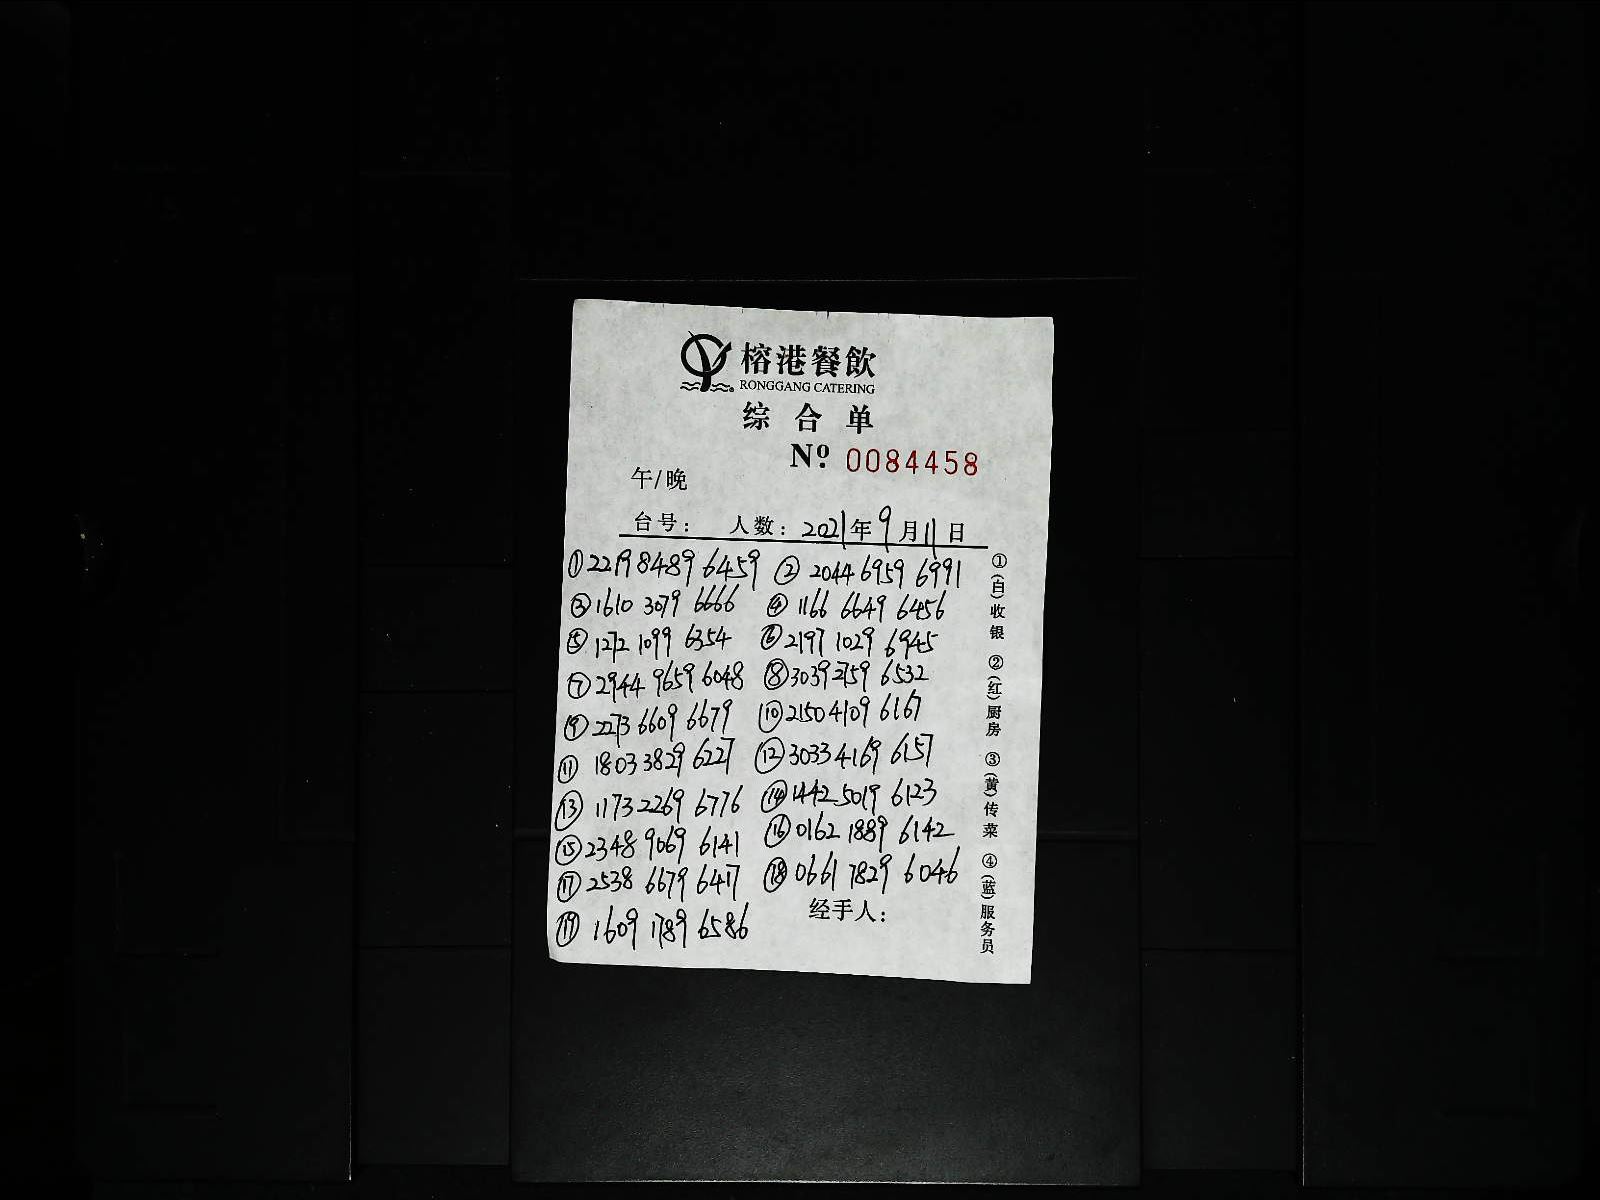 榕港餐飲
RONGGANG CATERING
综合单
Nº. 0084458
午/晚
台号: 人数: 2021年9月11日
①2219 8489 6459 ② 2044 6959 6991
③1610 3079 6666 ④ 1166 6649 6456
⑤1272 1099 6354 ⑥2197 1029 6945
⑦2944 9659 6048 ⑧3039 2759 6532
⑨2273 6609 6679 ⑩2150 4109 6167
⑪ 1803 3829 6227 ⑫3033 4169 6157
⑬ 1173 2269 6776 ⑭1442 5019 6123
⑮2348 9069 6141 ⑯0162 1889 6142
⑰2538 6679 6417 ⑱0661 7829 6046
⑲ 1609 1789 6586
经手人:
①(白)收银 ②(红)厨房 ③(黄)传菜 ④(蓝)服务员